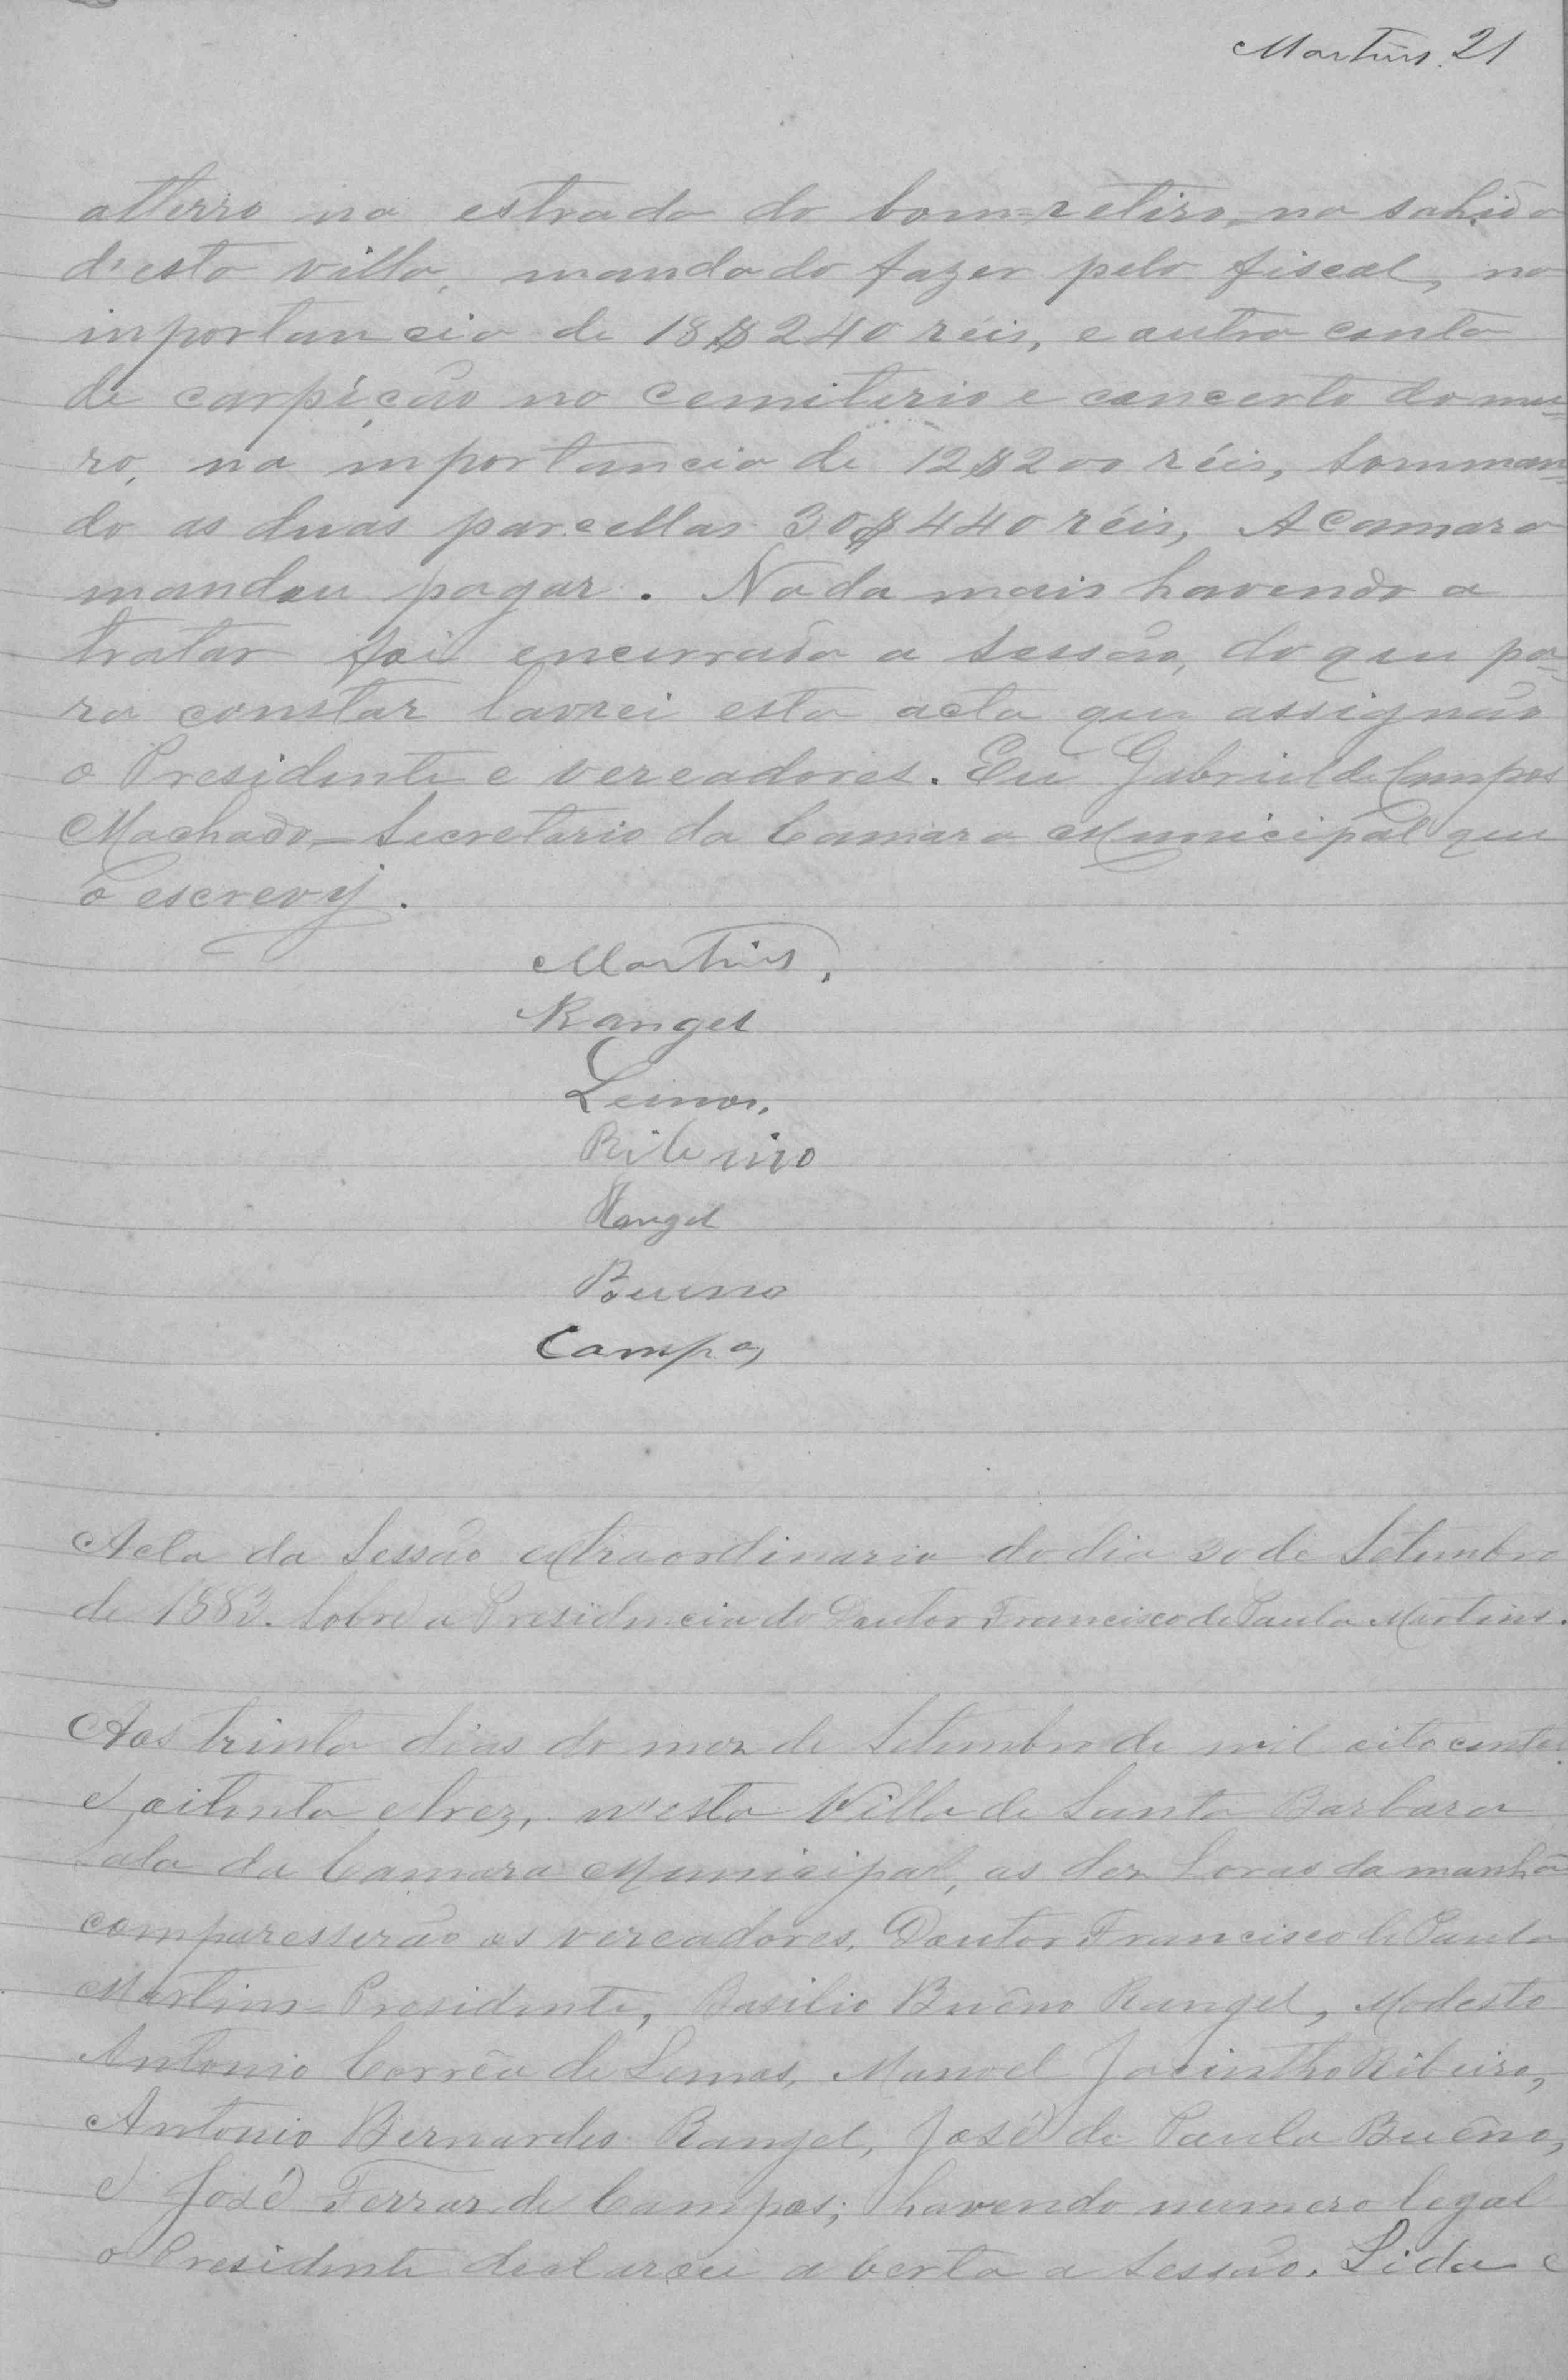 Martins. 21
atterro na estrada do bom=retiro, na sahida
d'esta villa, mandado fazer pelo fiscal, na
inportancia de 18$240 réis, e outra conta
de carpição no cemiterio e concerto do mu=
ro, na inportancia de 12$200 réis, somman=
do as duas parcellas 30$440 réis, A Camara
mandou pagar. Nada mais havendo a
tratar foi encerrada a sessão, do que pa=
ra constar lavrei esta acta que assignão
o Presidente e vereadores. Eu Gabriel de Campos
Machado_ Secretario da Camara Municipal que
o escrevy.
Martins.
Rangel
Lemos.
Ribeiro
Rangel
Bueno
Campos
Acta da Sessão extraordinaria do dia 30 de Setembro
de 1883. Sobre a Presidencia do Doutor Francisco de Paula Martins.
Aos trinta dias do mez de Setembro de mil oito centos
e oitenta e trez, n'esta Villa de Santa Barbara
Sala da Camara Municipal, as dez horas da manhã
comparesserão os vereadores, Doutor Francisco de Paula
Martins Presidente, Basilio Buêno Rangel, Modesto
Antonio Corrêa de Lemos, Manoel Jacintho Ribeiro,
Antonio Bernardes Rangel, José de Paula Buêno,
e José Ferraz de Campos; havendo numero legal
o Presidente declarou aberta a sessão. Lida e